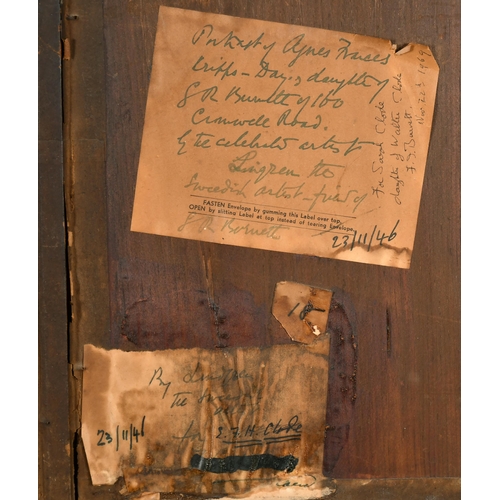 Portrait of Agnes Frances
Cripps-Day, daughter of
S R Burnett of 100
Cromwell Road.
by the celebrated artist
Lingren the
Swedish artist - friend of
FASTEN Envelope by gumming this Label over top.
OPEN by slitting Label at top instead of tearing Envelope.
S R Burnett
23/11/46
For Sarah Clode
daughter of Walter Clode
Nov 22
18
By
The
for E.F.H. Clode
23/11/46